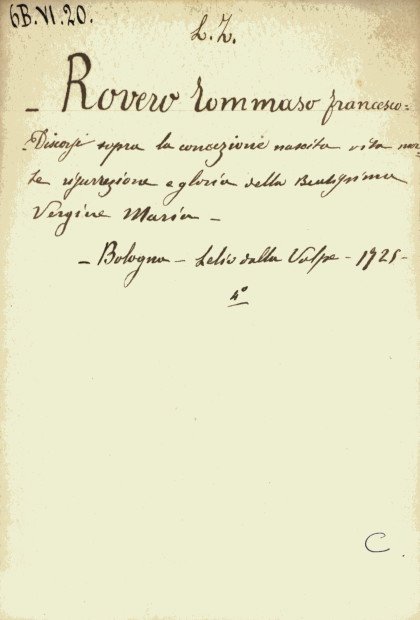 6B.VI.20.
L. Z.
- Rovero Tommaso Francesco=
=Discorsi sopra la concezione nascita vita mor-
te risurrezione e gloria della Beatissima
Vergine Maria -
- Bologna - Lelio dalla Volpe - 1725 -
4º
C